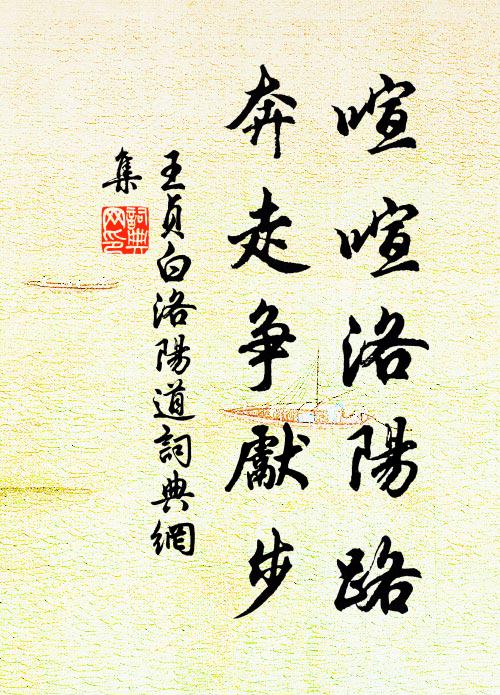 喧喧洛陽路
奔走争獻步
王貞白洛陽道詞典網
集
詞典网印